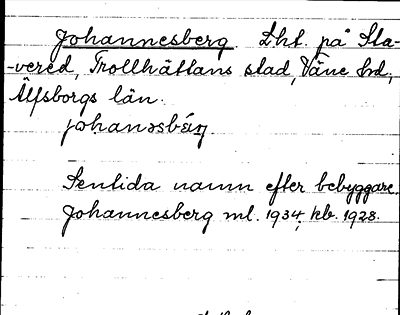 Johannesberg. Lht. på Sta-
-vered, Trollhättans stad, Väne hd,
Älfsborgs län.
johanəsbárj.
Sentida namn efter bebyggare.
Johannesberg ml. 1934, kb. 1928.